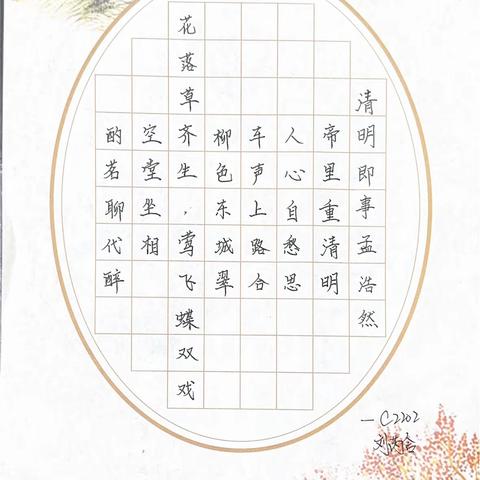 清明即事孟浩然
帝里重清明
人心自愁思
车声上路合
柳色东城翠
花落草齐生，莺飞蝶双戏
空堂坐相
酌茗聊代醉
—C2202
刘